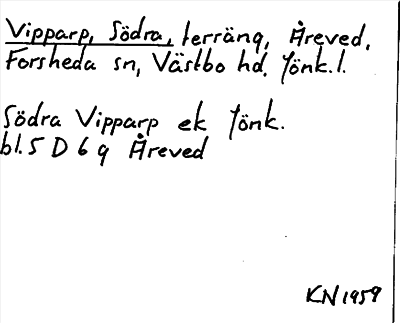 Vipparp, Södra, terräng, Åreved,
Forsheda sn, Västbo hd, Jönk.l.
Södra Vipparp ek Jönk.
bl. 5 D 6 g Åreved
KN 1959